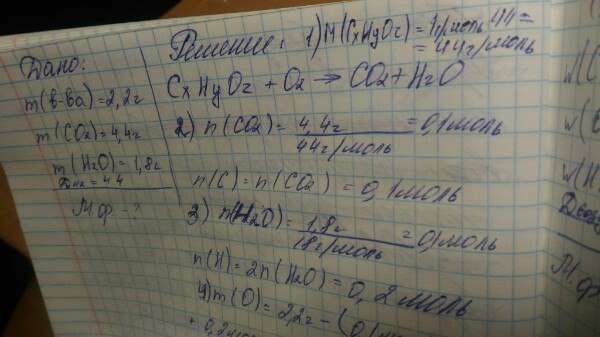 Дано:
m(в-ва)=2,2г
m(CO2)=4,4г
m(H2O)=1,8г
=44
М.ф-?
Решение: 1) M(CxHyOz)=1г/моль 44=
=44г/моль
CxHyOz + O2 → CO2+H2O
2) n(CO2)= 4,4г =0,1моль
44г/моль
n(C)=n(CO2)=0,1моль
3) n(H2O)= 1,8г =0,1моль
18г/моль
n(H)=2n(H2O)=0,2моль
4) m(O)=2,2г-(0,1
+ 0,2
w(C
w(
w(H
М.ф